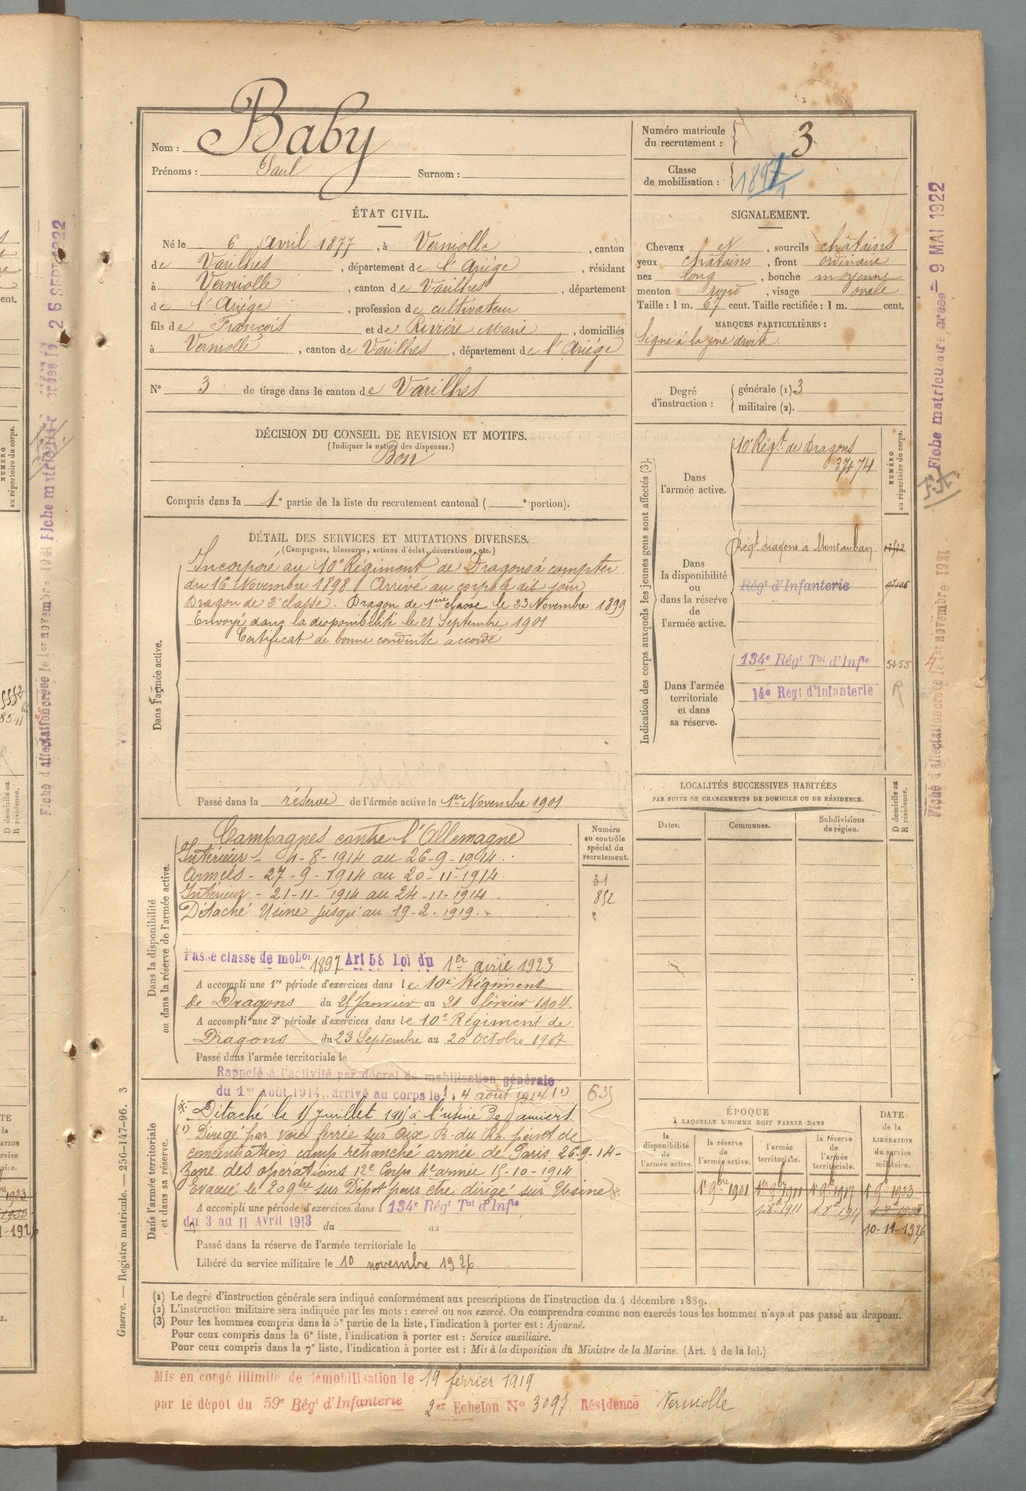 Nom : Baby
Prénoms : Paul Surnom :
Numéro matricule du recrutement : 3
Classe de mobilisation : 1897
ÉTAT CIVIL.
Né le 6 avril 1877, à Verniolle, canton
de Varilhes, département de l'Ariége, résidant
à Verniolle, canton de Varilhes, département
de l'Ariége, profession de cultivateur
fils de François et de Rivière Marie, domiciliés
à Verniolle, canton de Varilhes, département de l'Ariége
SIGNALEMENT.
Cheveux et, sourcils châtains
yeux châtains, front ordinaire
nez long, bouche moyenne
menton rond, visage ovale
Taille : 1 m. 67 cent. Taille rectifiée : 1 m. cent.
MARQUES PARTICULIÈRES :
Signe à la joue droite.
N° 3 de tirage dans le canton de Varilhes
Degré d'instruction : générale (1). 3
militaire (2).
DÉCISION DU CONSEIL DE REVISION ET MOTIFS.
(Indiquer la nature des dispenses.)
Bon
Compris dans la 1e partie de la liste du recrutement cantonal ( e portion).
DÉTAIL DES SERVICES ET MUTATIONS DIVERSES.
(Campagnes, blessures, actions d'éclat, décorations, etc.)
Dans l'armée active.
Incorporé au 10e Régiment de Dragons à compter
du 16 Novembre 1898. Arrivé au corps le dit jour
Dragon de 2e classe. Dragon de 1ère classe le 23 Novembre 1899
Envoyé dans la disponibilité le 21 Septembre 1901
Certificat de bonne conduite accordé
Passé dans la réserve de l'armée active le 1er Novembre 1901
Indication des corps auxquels les jeunes gens sont affectés (3).
NUMÉRO au répertoire du corps.
Dans l'armée active.
10e Régt. de Dragons
3474
Dans la disponibilité ou dans la réserve de l'armée active.
Régt. dragons à Montauban
Régt d'Infanterie
Dans l'armée territoriale et dans sa réserve.
134e Régt Tal d'Infie
5155
14e Regt d'Infanterie
LOCALITÉS SUCCESSIVES HABITÉES
PAR SUITE DE CHANGEMENTS DE DOMICILE OU DE RÉSIDENCE.
Dates.
Communes.
Subdivisions de région.
D domicile ou R résidence.
Dans la disponibilité ou dans la réserve de l'armée active.
Numéro au contrôle spécial du recrutement.
Campagnes contre l'Allemagne
Intérieur - 4-8-1914 au 26-9-1914.
Armées - 27-9-1914 au 20-11-1914
Intérieur - 21-11-1914 au 24-11-1914.
Détaché Usine jusqu'au 19-2-1919.
31
852
Passe classe de mobon 1897 Art 58 Loi du 1er avril 1923
A accompli une 1re période d'exercices dans le 10e Régiment
de Dragons du 25 Janvier au 21 février 1904.
A accompli une 2e période d'exercices dans le 10e Régiment de
Dragons du 23 Septembre au 20 Octobre 1907
Passé dans l'armée territoriale le
Rappelé à l'activité par décret de mobilisation générale
du 1er août 1914, arrivé au corps le 4 août 1914 (1)
635
Dans l'armée territoriale et dans sa réserve.
(1) Dirigé par voie ferrée sur Aix B. du Rh. point de
concentration camp retranché armée de Paris, 26-9-14-
Zone des opérations 12e Corps 4e armée 15-10-1914
A accompli une période d'exercices dans l 134e Régt Tal d'Infie
du 3 au 11 Avril 1913 du au
Passé dans la réserve de l'armée territoriale le
Libéré du service militaire le 10 novembre 1926
ÉPOQUE
À LAQUELLE L'HOMME DOIT PASSER DANS
la disponibilité de l'armée active.
la réserve de l'armée active.
l'armée territoriale.
la réserve de l'armée territoriale.
DATE de la LIBÉRATION du service militaire.
1er 9bre 1901
1er 9bre 1911
1er 9bre 1917
10-11-1926
(1) Le degré d'instruction générale sera indiqué conformément aux prescriptions de l'instruction du 4 décembre 1889.
(2) L'instruction militaire sera indiquée par les mots : exercé ou non exercé. On comprendra comme non exercés tous les hommes n'ayant pas passé au drapeau.
(3) Pour les hommes compris dans la 5e partie de la liste, l'indication à porter est : Ajourné.
Pour ceux compris dans la 6e liste, l'indication à porter est : Service auxiliaire.
Pour ceux compris dans la 7e liste, l'indication à porter est : Mis à la disposition du Ministre de la Marine. (Art. 4 de la loi.)
Mis en congé illimité de démobilisation le 19 février 1919
par le dépot du 59e Régt d'Infanterie 2er Echelon N° 3097 Résidence Verniolle
Guerre. — Registre matricule. — 256-147-96. 3
Fiche matriculaire créée - 9 MAI 1922
Fiche d'affectation créée le 1er novembre 1921